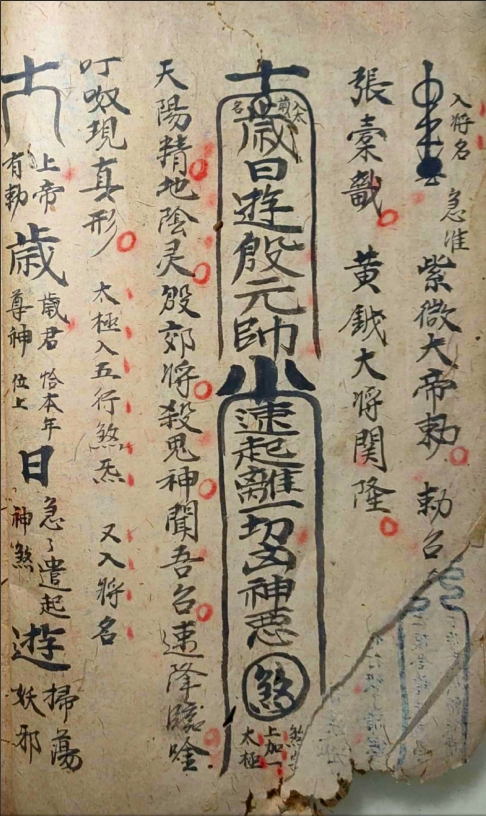 入將名 急准 紫微大帝勅 勅召
張 黄鉞大将関隆
太歲前名
歳日遊殷元帥
速起離一切凶神悪煞
煞字上加一太極
天陽精地陰灵殷郊将殺鬼神聞吾召速降臨唫
叮㕭現真形 太極入五行煞炁 又入將名
上帝有勅 歳 歳君尊神 恰本年位上 日 急々遣起神煞 遊 掃蕩妖邪